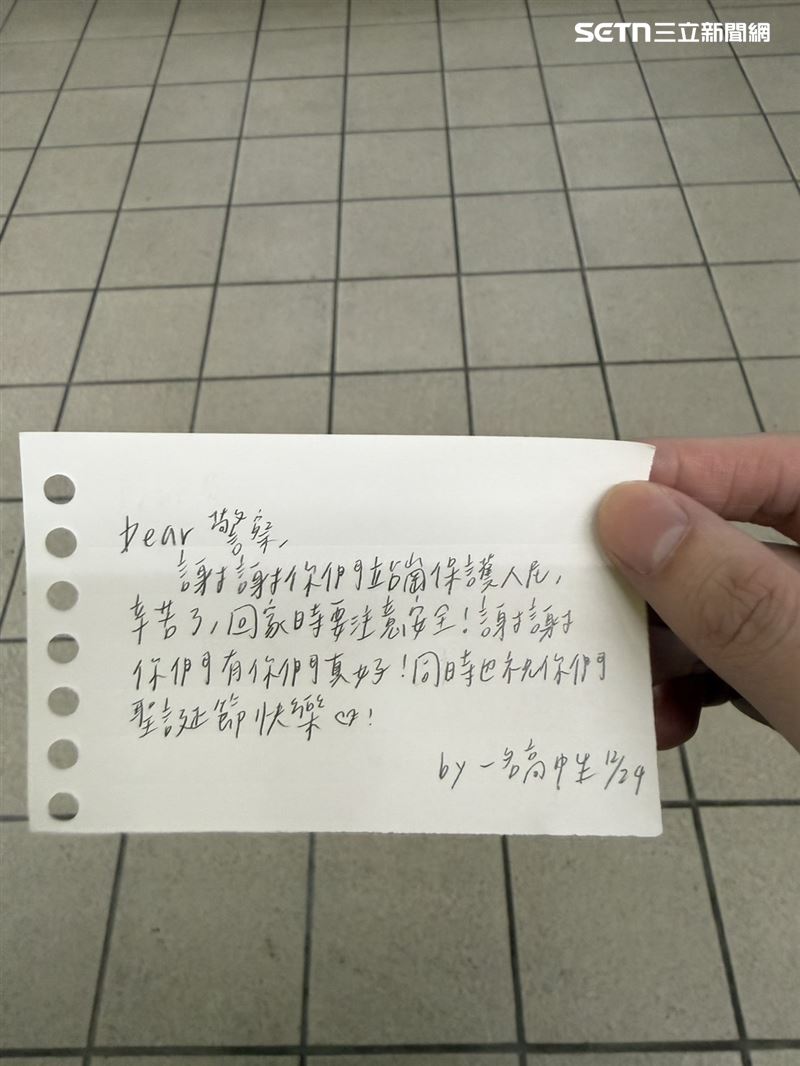 SETN三立新聞網
Dear 警察,
謝謝你們站崗保護人民,
辛苦了,回家時要注意安全!謝謝
你們有你們真好!同時也祝你們
聖誕節快樂♡!
by 一名高中生 12/24